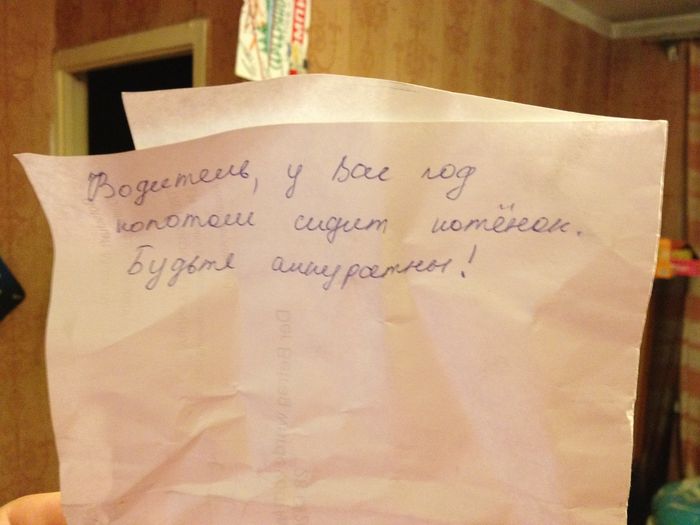 Водитель, у Вас под
капотом сидит котёнок.
Будьте аккуратны!